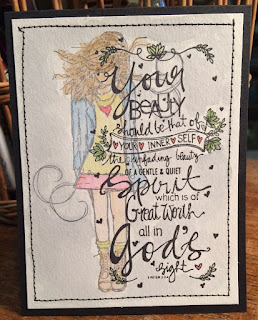 Your
BEAUTY
should be that of
YOUR INNER SELF
the unfading beauty
OF A GENTLE & QUIET
Spirit
which is of
Great Worth
all in
God's
Sight